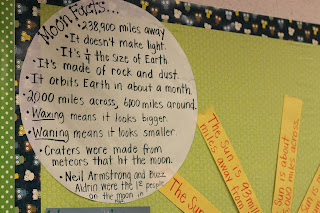 Moon Facts...
• 238,900 miles away
• It doesn't make light.
• It's 1/4 the size of Earth.
• It's made of rock and dust.
• It orbits Earth in about a month.
• 2,000 miles across, 6,000 miles around.
• Waxing means it looks bigger.
• Waning means it looks smaller.
• Craters were made from
meteors that hit the moon.
• Neil Armstrong and Buzz
Aldrin were the 1st people
on the moon in
The Sun
The Sun is 93 mil
miles away from
Sun is about
000 miles across.